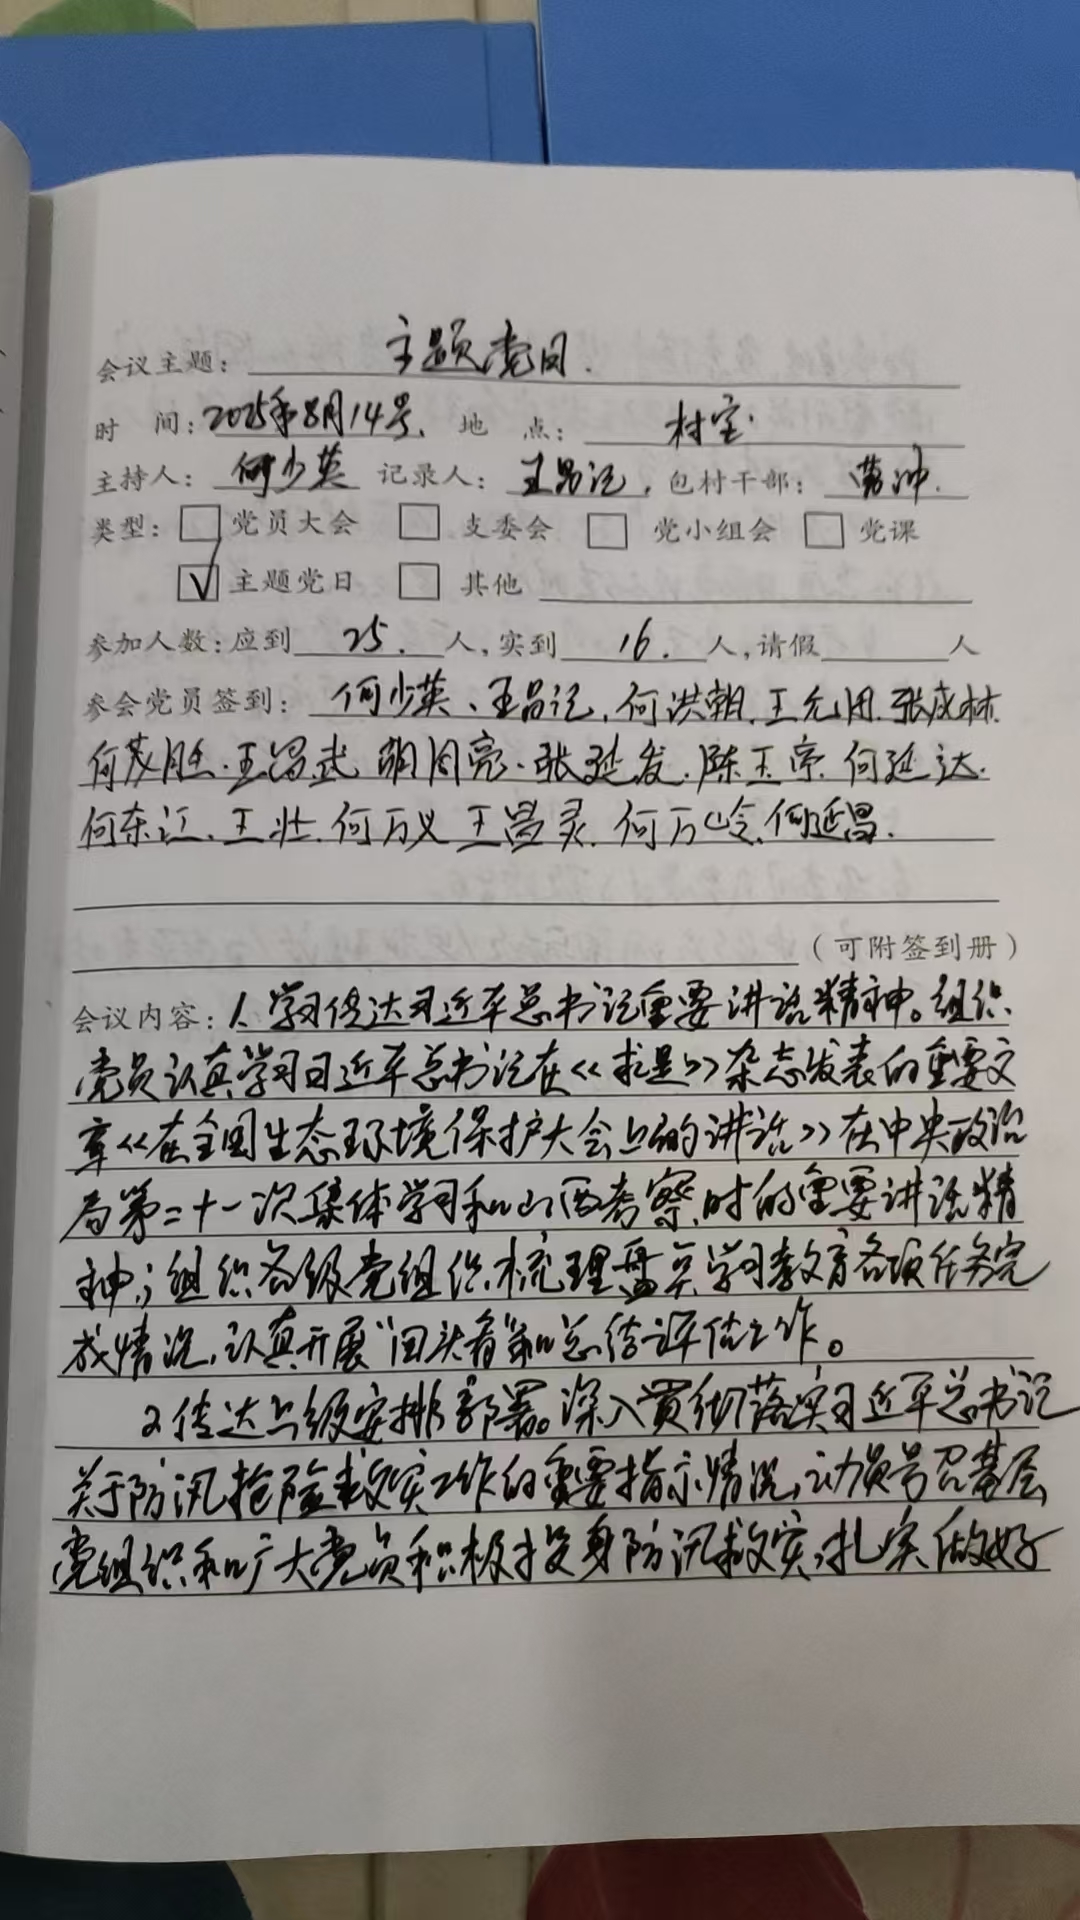 会议主题：主题党日.
时 间：2025年8月14号. 地 点：村室.
主持人：何少英 记录人：王昌记. 包村干部：曹冲.
类型：□党员大会 □支委会 □党小组会 □党课
☑主题党日 □其他
参加人数：应到 25. 人，实到 16. 人，请假 人
参会党员签到：何少英、王昌记.何洪朝.王允田.张成林.
何茂胜.王昌武 胡同亮.张延发.陈玉亭.何延达.
何东江.王壮.何万义 王昌灵.何万岭.何延昌.
（可附签到册）
会议内容：1.学习传达习近平总书记重要讲话精神。组织
党员认真学习习近平总书记在《求是》杂志发表的重要文
章《在全国生态环境保护大会上的讲话》在中央政治
局第二十一次集体学习和山西考察时的重要讲话精
神；组织各级党组织梳理盘点学习教育各项任务完
成情况,认真开展"回头看"和总结评估工作。
2传达上级安排部署。深入贯彻落实习近平总书记
关于防汛抢险救灾工作的重要指示情况,动员号召基层
党组织和广大党员积极投身防汛救灾,扎实做好